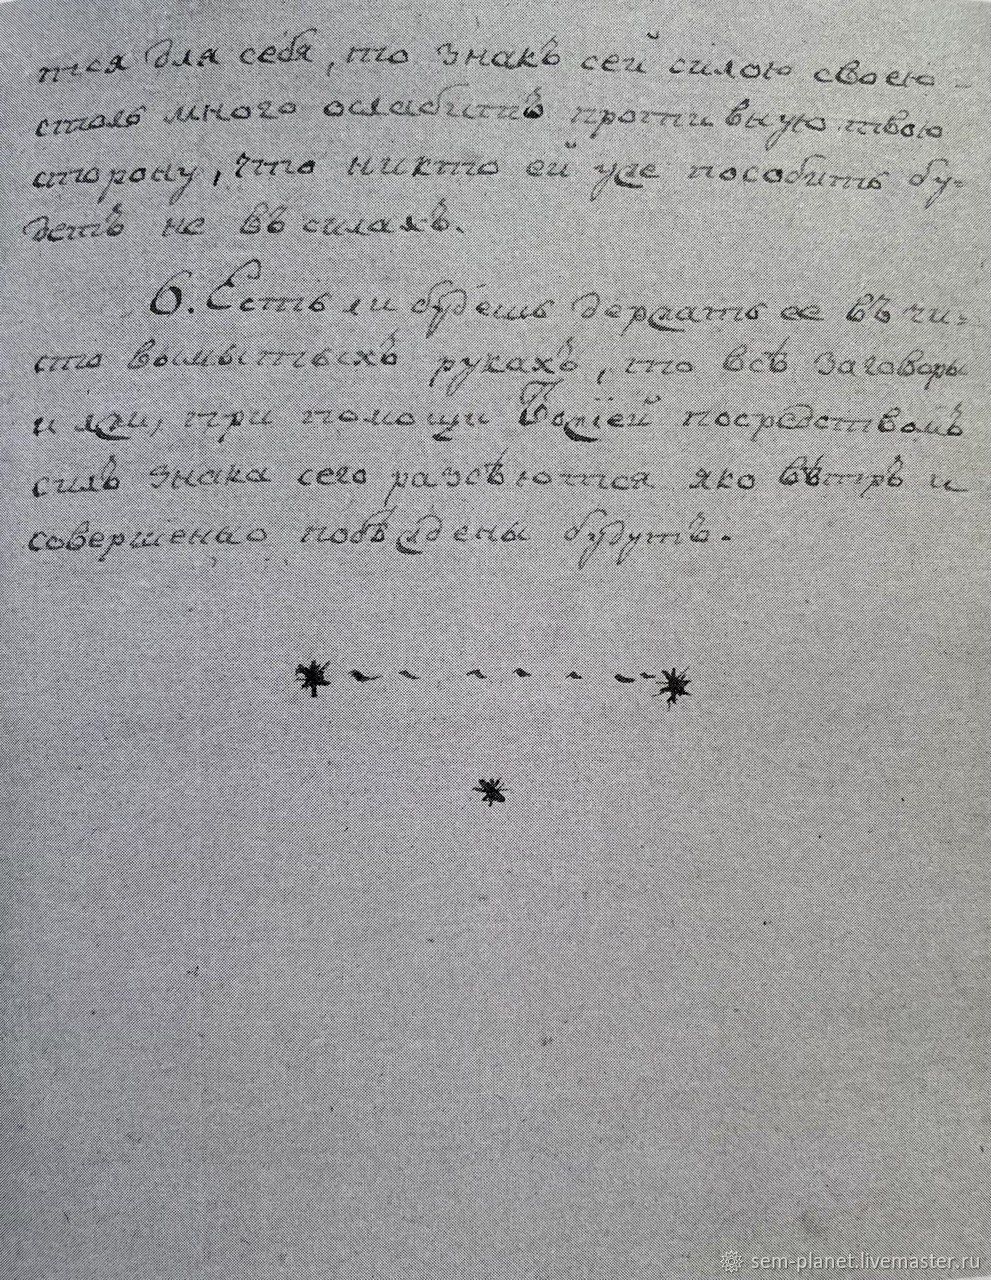 тся для себя, то знакъ сей силою своею
столь много ослабитъ противную твою
сторону, что никто ей уже пособить бу-
детъ не въ силахъ.
6. Есть ли будешь держать ее въ чи-
сто вымытыхъ рукахъ, то всѣ заговоры
и лжи, при помощи Божіей посредствомъ
силъ знака сего разсѣются яко вѣтръ и
совершенно побѣждены будутъ.
sem-planet.livemaster.ru